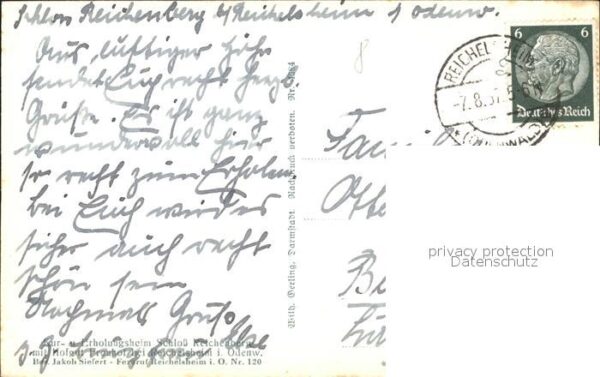 Schloss Reichenberg b/ Reichelsheim i/ Odenw.
Aus luftiger Höhe
sendet Euch recht herzl.
Grüße. Es ist ganz
wundervoll hier
so recht zum Erholen
bei Euch wird es
sicher auch recht
schön sein
Nochmals Gruß
Kur- u. Erholungsheim Schloß Reichenberg
mit Hofgut Bornhof bei Reichelsheim i. Odenw.
Bes. Jakob Siefert - Fernruf Reichelsheim i. O. Nr. 120
Wilh. Gerling, Darmstadt. Nachdruck verboten.
8
Fam
Otto
6 6
Deutsches Reich
REICHELSHEIM
7.8.37
(ODENWALD)
privacy protection
Datenschutz